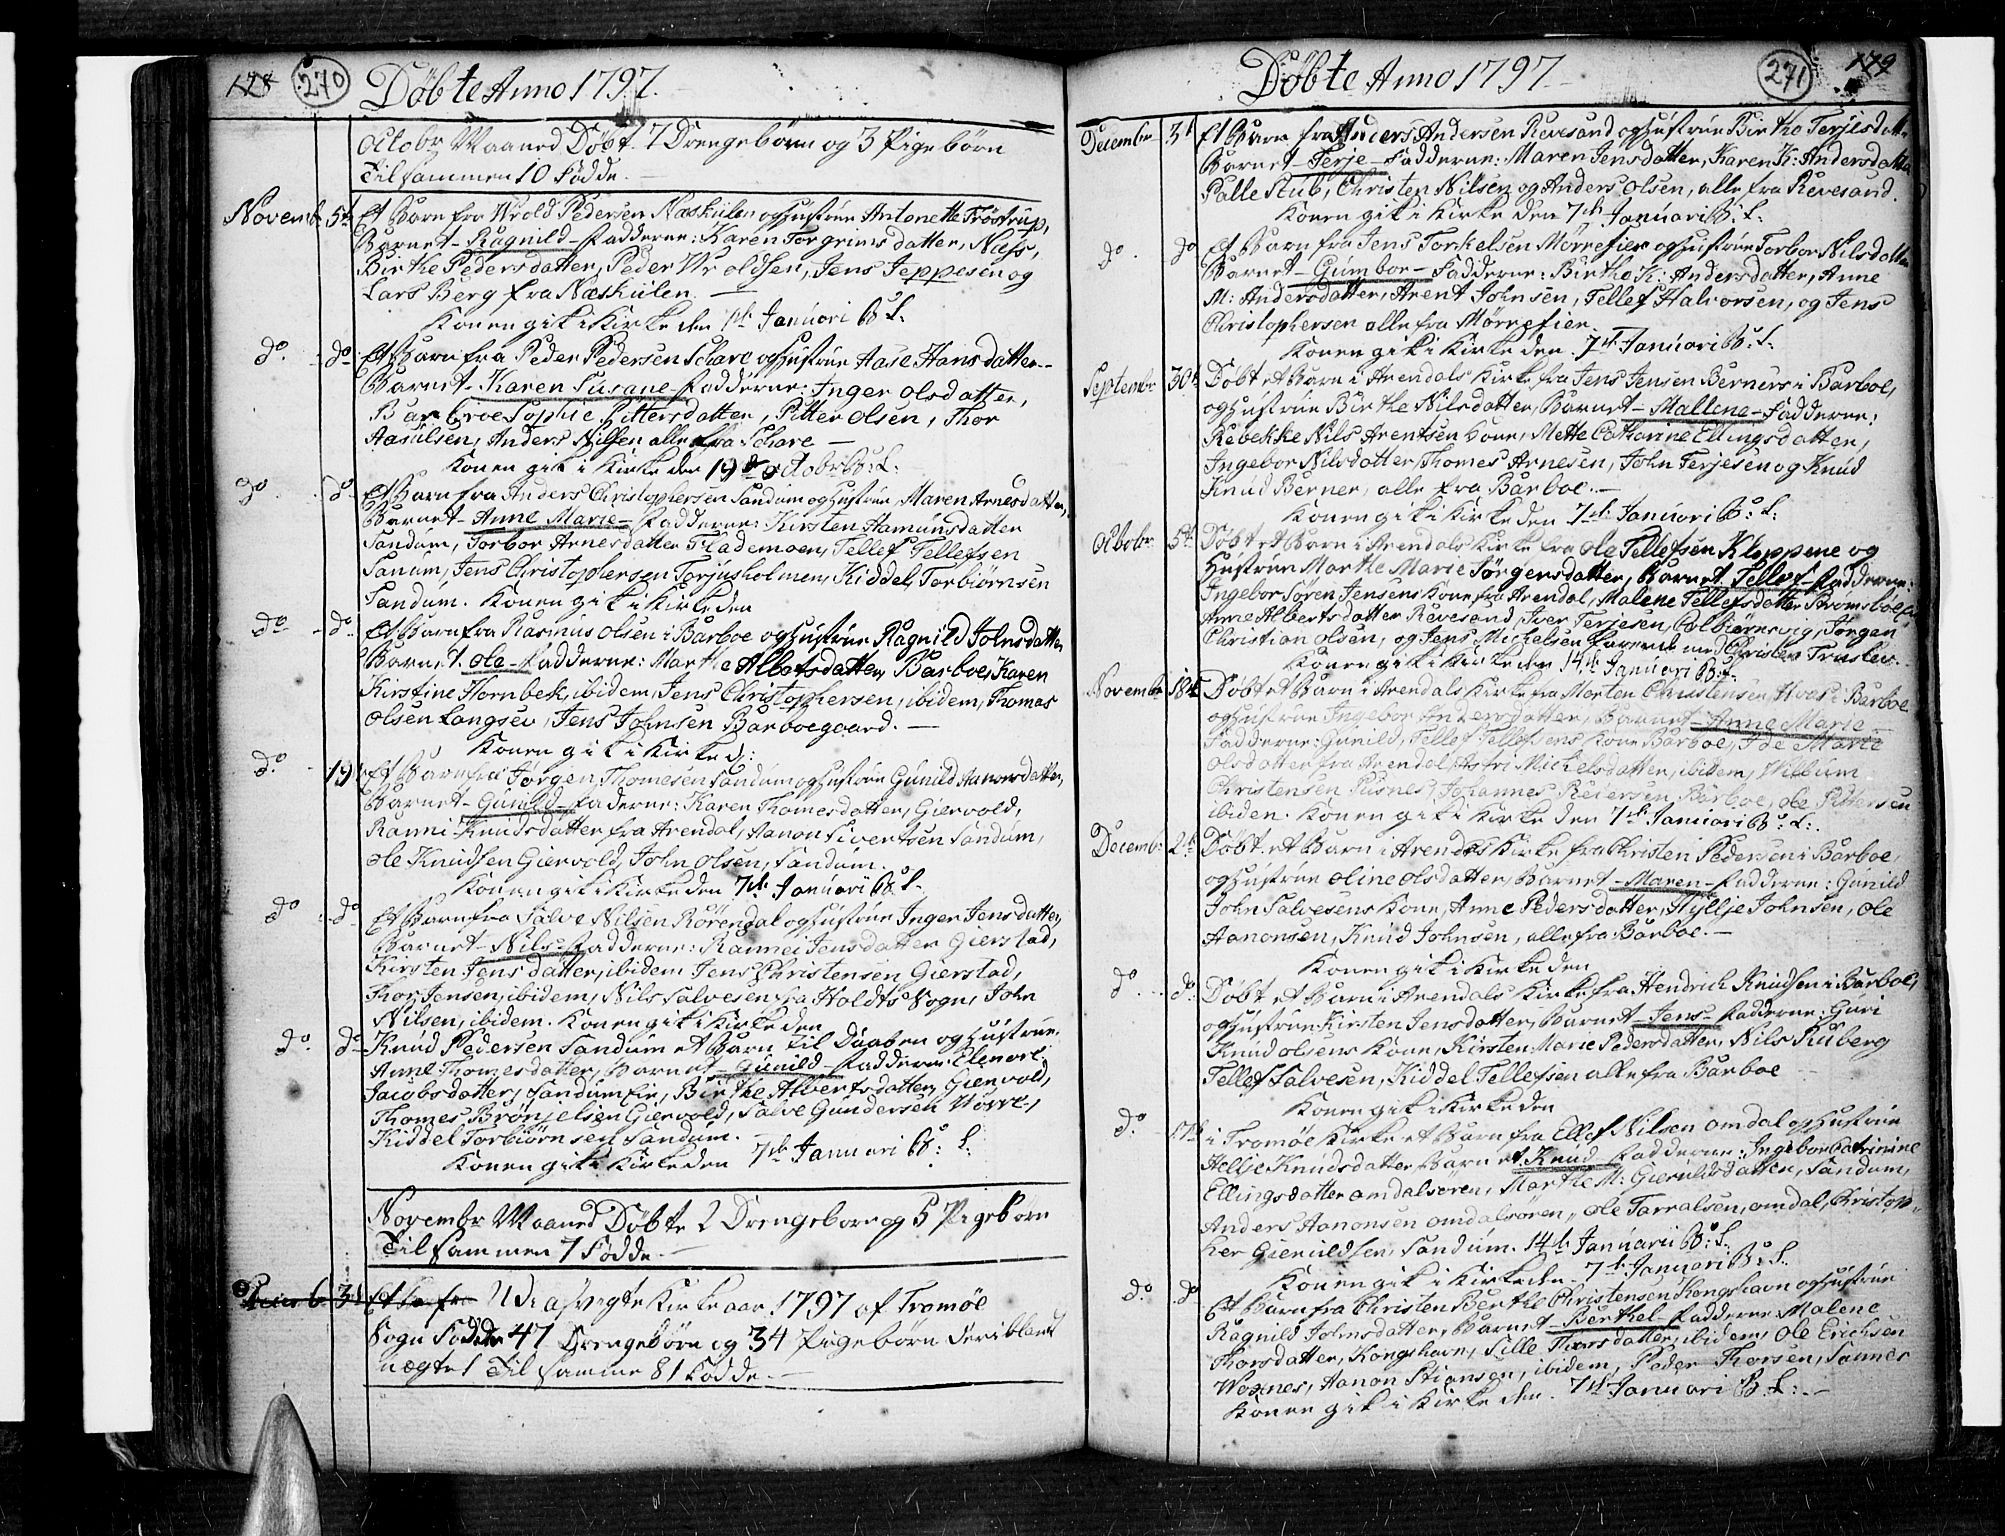 178 270 Döbte Anno 1797.
Octobr Maaned Döbt 7 Drengebörn og 3 Pigebörn
Tilsammen 10 Födde.
Novemb. 5t Et Barn fra Wrold Pedersen Næskilen og Hustrue Antonette Tröstrup,
Barnet - Ragnild - Fadderne: Karen Torgrims datter, Næss,
Birthe Pedersdatter, Peder Wroldsen, Jens Jeppesen og
Lars Berg fra Næskilen. —
Konen gik i Kirke den 1t Januari B: L:
do. do Et Barn fra Peder Pedersen Schare og Hustrue Aase Hansdatter -
Barnet - Karen Susane - Fadderne: Inger Olsdatter,
Barbroe Sophie Pittersdatter, Pitter Olsen, Thor
Aasulsen, Anders Nilsen alle fra Schare —
Konen gik i Kirke den 19d Octobr B: L:
do. do. Et Barn fra Anders Christophersen Sandum og Hustrue Maren Arnesdatter,
Barnet - Anne Marie - Fadderne: Kirsten Hamunsdatter
Sandum, Torbor Arnesdatter Flademoen, Tellef Tellefsen
Sanum, Jens Christophersen Torjusholmen, Kiddel Torbiörnsen
Sandum. Konen gik i Kirke den
do - do Et Barn fra Rasmus Olsen i Barboe og Hustrue Ragnild Johnsdatter
Barnet. Ole - Fadderne: Marthe Albetsdatter, Barboe, Karen
Kirstine Hornbek, ibidem, Jens Christophersen, ibidem, Thomas
Olsen Langsev, Jens Johnsen Barboegaard. —
Konen gik i Kirke d:
do. 19 Et Barn fra Jörgen Thomesen Sandum og Hustrue Gunild Aanonsdatter,
Barnet - Gunild - Fadderne: Karen Thomesdatter, Giervold,
Ranni Knudsdatter fra Arendal, Aanon Sivertsen Sandum,
Ole Knudsen Giervold, John Olsen, Sandum.
Konen gik i Kirke den 7de Januari B: L.
do do Et Barn fra Salve Nilsen Rörendal og Hustrue Inger Jensdatter,
Barnet - Nils - Fadderne: Rannei Jensdatter Gierstad,
Kirsten Jensdatter, ibidem Jens Christensen Gierstad,
Thor Jensen, ibidem, Nils Salvesen fra Holdts Sogn, John
Nilsen, ibidem. Konen gik i Kirke den
do. do Knud Pedersen Sandum et Barn til Daaben og Hustrue
Anne Thomesdatter, Barnet - Gunild - Fadderne: Elenore
Jacobsdatter, Sandum, Birthe Albertsdatter, Giervold,
Thomes Brönjelsen Giervold, Salve Gundersen
Kiddel Torbiörnsen Sandum. —
Konen gik i Kirke den 7de Januari B: L:
Novembr Maaned Döbte 2 Drengebörn og 5 Pigebörn
Tilsammen 7 Födde. —
31 Et Ba fra Udi afvigte Kirke aar 1797 af Tromöe
Sogn Födde 47 Drengebörn og 34 Pigebörn
1 Til samme 81 Födde. —
Döbte Anno 1797 271 179
Decembr 31 Et Barn fra Anders Andersen Revesand og Hustrue Birthe Terjesdatter
Barnet - Terje - Fadderne: Maren Jensdatter, Karen K: Andersdatter
Palle Stub, Christen Nilsen og Anders Olsen, alle fra Revesand.
Konen gik i Kirke den 7de Januari B: L:
do. do Et Barn fra Jens Torkelsen Mörrefier og Hustrue Torbor Nilsdatter
Barnet - Gumbor - Fadderne: Birthe K: Andersdatter, Anne
M: Andersdatter, Arent Johnsen, Tellef Halvorsen, og Jens
Christophersen alle fra Mörrefier.
Konen gik i Kirke den. 7t Januari B: L:
Septembr 30t Döbt et Barn i Arendals Kirke fra Jens Jensen Berners i Barboe,
og Hustrue Birthe Nilsdatter, Barnet - Mallene - Fadderne:
Rebekke Nils Arentsen Kone, Mette Catharine Ellingsdatter,
Ingebor Nilsdatter, Thomes Arnesen, John Terjesen og Knud
Knud Berner, alle fra Barboe. —
Konen gik i Kirke den 7de Januari B: L:
Octobr 5t Döbt et Barn i Arendals Kirke fra Ole Tellefsen Kloppene og
Hustrue Marthe Marie Jörgensdatter, Barnet Tellef - Fadderne:
Ingebor Sören Jensens Kone fra Arendal, Malene Tellefsdatter Brömsboe
Anne Albertsdatter Revesand, Iver Terjesen, Colbiörnsvig, Jörgen
Christian Olsen, og Jens Mickelsen
Konen gik i Kirke den 14de Januari B: L:
Novembr 18t Döbt et Barn i Arendals Kirke fra Morten Christensen i Barboe
og Hustrue Ingebor Andersdatter, Barnet - Anne Marie
Fadderne: Gunild, Tellef Tellefsens Kone Barboe, Ide Marie
Olsdatter fra Arendal, Mickelsdatter, ibidem, Willum
Christensen Pusnes, Johannes Reiersen, Barboe, Ole Pittersen
ibidem. Konen gik i Kirke den 7de Januari B: L:.
Decemb: 2de Döbt et Barn i Arendals Kirke fra Christen Pedersen i Barboe,
og Hustrue Oline Olsdatter, Barnet - Maren - Fadderne: Gunild
John Salvesens Kone, Anne Pedersdatter, Johnsen, Ole
Aanonsen, Knud Johnsen, alle fra Barboe. —
Konen gik i Kirke den
do. do. Döbt et Barn i Arendals Kirke fra Hendrich Knudsen i Barboe,
og Hustrue Kirsten Jensdatter, Barnet - Jens - Fadderne: Guri
Knud Olsens Kone, Kirsten Marie Pedersdatter, Nils Ruberg
Tellef Salvesen, Kiddel Tellefsen alle fra Barboe
Konen gik i Kirke den
do. 17de i Tromöe Kirke et Barn fra Ellef Nilsen Omdal og Hustrue
Helje Knudsdatter, Barnet. Knud - Fadderne: Ingebor Catrinine
Ellingsdatter Omdalsören, Marthe M: Gieruldsdatter, Sandum,
Anders Aanonsen Omdalsören, Ole Tarralsen, Omdal, Christop-
her Gieruldsen, Sandum. 14de Januarii B: L:
Konen gik i Kirke den. 7de Januari B: L.
do. do Et Barn fra Christen Berthel Christensen Kongshavn og Hustrue
Ragnild Johnsdatter, Barnet - Berthel - Fadderne: Malene
Thorsdatter, Kongshavn, Sille Thorsdatter, ibidem, Ole Erichsen
Woxnes, Aanon Stiansen, ibidem, Peder Thorsen, Sannes
Konen gik i Kirke den. 7de Januari B: L: —